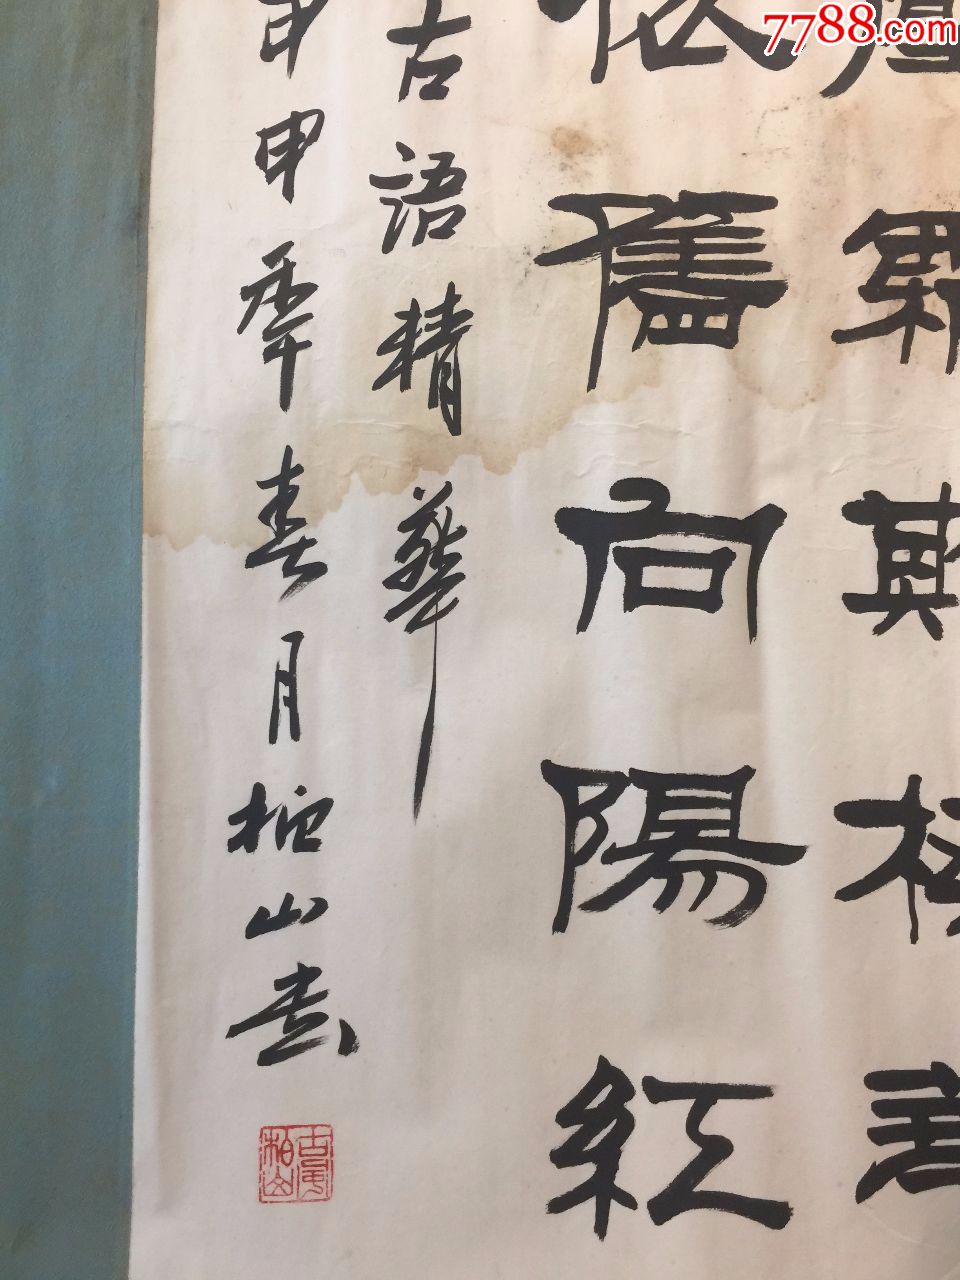 7788.com
依舊向陽紅
古語精華
甲申年春月柏山書
柏山